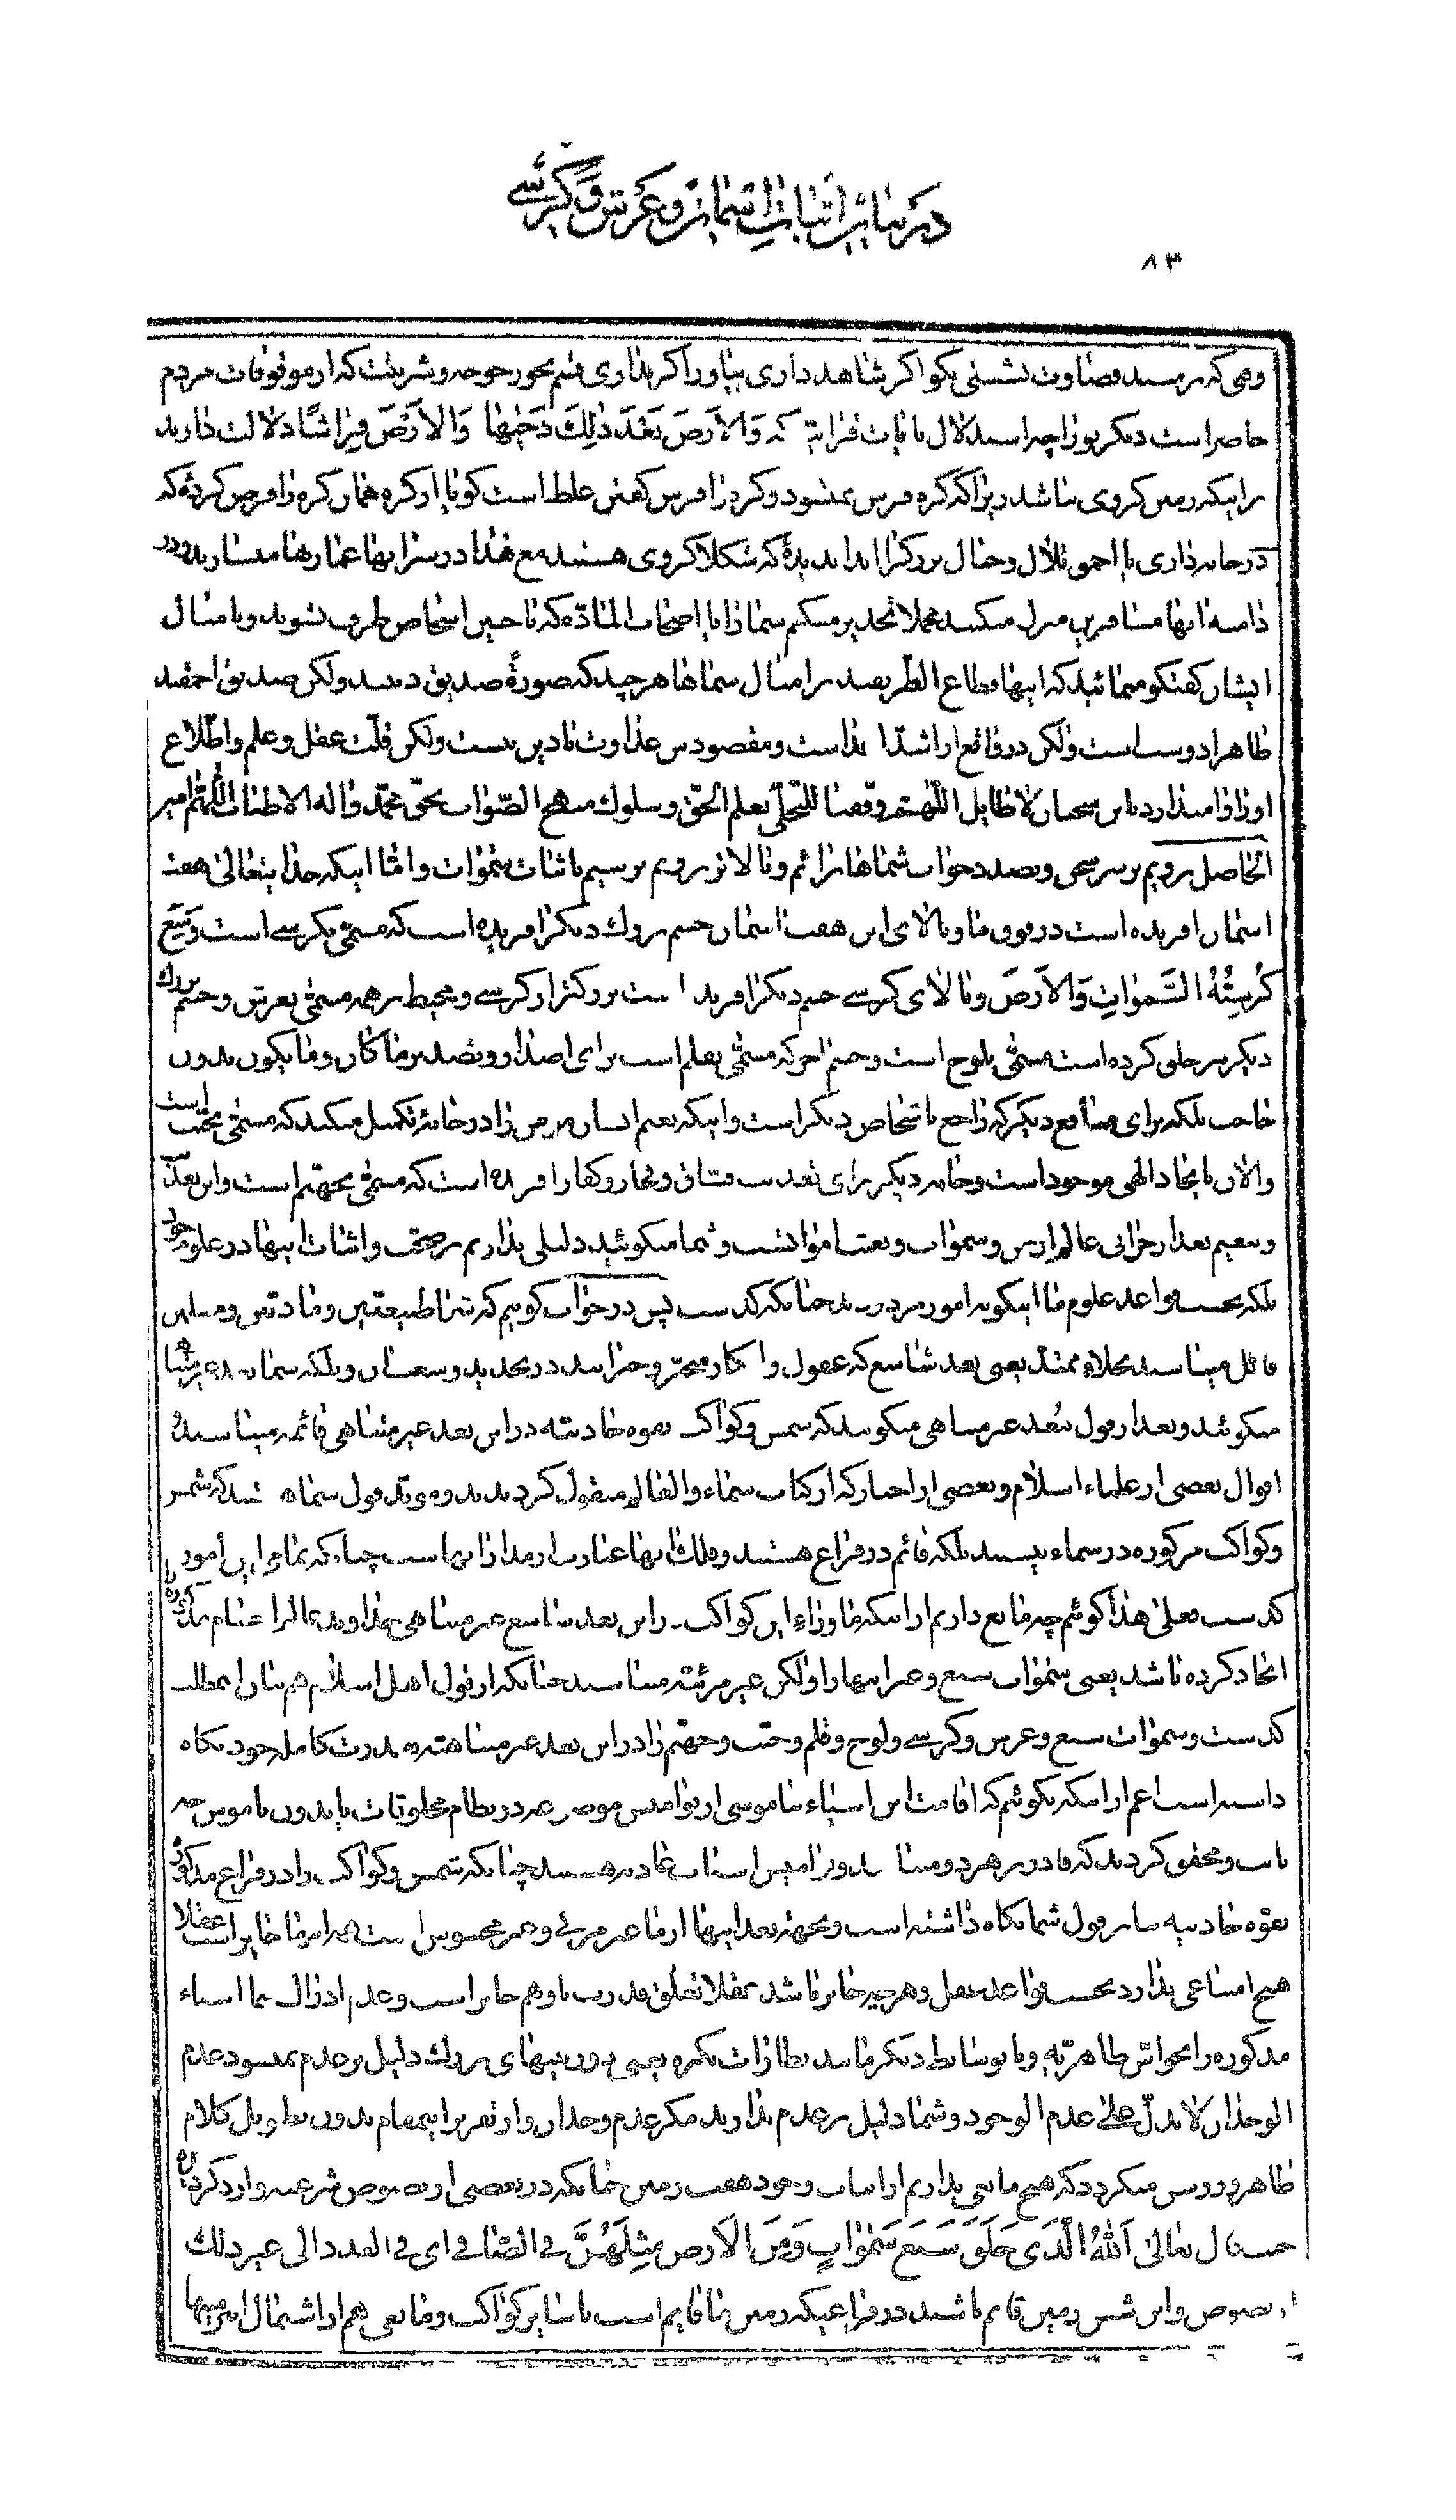 در بیان اثبات اسمان و عرش و کرسے
٨٣
وهی که بر مسند قضاوت نشستی بکو اکر شاهد داری بیاور اکر نداری قسم بخور خوجه و شریعت که از موقوفات مردم
حاضر است دیکر بو زا چه استدلال بایات قرانیه که وَالاَرضَ بَعْدَ ذٰلِكَ دَحٰیها وَالاَرْضَ فِرٰاشًا دلالت دارند
بر اینکه زمین کروی نباشد زیرا که کره فرش نمیشود و کره را فرش کفتن غلط است کویا از کره همان کره را فرض کرده که
در خانه داری یا احمق تلال و جبال بزرکرا ابدا ندیده که شکلا کروی هستند مع هذا در سرا بها عمارها میسازند و در
دامنه انها مسافرین منزل میکنند مجملا تحذیر میکنم شما را یا اصحاب المادّه که با چنین اشخاص طرف نشوید و با مثال
ایشان کفتکو منمائید که اینها قطاع الطّریقند بر امثال شماها هر چند که صورةً صدیق دهند ولکن صدیق احمقند
ظاهرا دوست است ولکن در واقع از اشدّ است و مقصودش عداوت با دین نیست ولکن قلّت عقل و علم و اطّلاع
او را وامیدارد باین سخنان لا طایل اللّهم وفّقنا للتّحلّی بعلم الحقّ و سلوك منهج الصّواب بحقّ محمّد واله الاطیاب اللّهم امین
الحاصل رویم بر سر سخن و بصدد جواب شماها برائیم و بالاتر رویم برسیم باثبات سموات و امّا اینکه خدایتعالی هفت
اسمان افریده است در فوق ما و بالای این هفت اسمان جسم بزرك دیکر افریده است که مسمّی بکرسے است وَسِعَ
كُرسِیُّهُ السَّمٰواتِ وَالاَرضَ و بالای کرسے جسم دیکر افریده است بزرکتر از کرسے و محیط بر همه مسمّی بعرش و جسم بزرك
دیکر هم خلق کرده است مسمّی بلوح است و جسم اخر که مسمّی بقلم است برای اصدار و تصدیر ماکان و ما یکون بدون
حاجت بلکه برای منافع دیکر که راجع باشخاص دیکر است و اینکه نعیم انسان مؤمن را در خانه تکمیل میکند که مسمّی بجنّت است
والان بایجاد الهی موجود است و خانه دیکر برای تعذیب فسّاق و فجّار و کفّار افریده است که مسمّی بجهنّم است و این تعذیب
و تنعیم بعد از خرابی عالم ارض و سموات و بعث اموات است و شما میکوئید دلیلی نداریم بر صحّت و اثبات اینها در علوم خود
بلکه بحسب قواعد علوم ما اینکونه امور مردود ند چنانکه کذشت پس در جواب کویم که شما طبیعیّین و مادیّین و
قائل میباشید بخلاء ممتدّ یعنی بعد شاسع که عقول و افکار متحیّر و حیرانند در تحدید وسعت ان و بلکه شما بعد غیر متناهی
میکوئید و بعد از قول ببُعد غیر متناهی میکوئید که شمس و کواکب بقوه جاذبیّه در این بعد غیر متناهی قائم میباشند
اقوال بعضی از علماء اسلام و بعضی از اخبار که از کتاب سماء والعالم منقول کردیدند مؤید قول شما هستند که شمس
و کواکب مرکوزه در سماء نیستند بلکه قائم در فراغ هستند و فلك انها عبارت از مدارانهاست چنانکه تمام این امور
کذشت فعلی هذا کوئیم چه مانع داریم از اینکه ماوراء این کواکب در این بعد شاسع غیر متناهی خداوند عالم اجسام مذکوره را
ایجاد کرده باشد یعنی سموات سبع و غیر اینها را ولکن غیر مرئیّه میباشند چنانکه از قول اهل اسلام هم بیان این مطلب
کذشت و سموات سبع و عرش و کرسے و لوح و قلم و جنّت و جهنّم را در این بعد غیر متناهی بقدرت کامله خود نکاه
داشته است اعم از اینکه بکوئیم که اقامت این اشیاء بناموسی از نوامیس موضوعه در نظام مخلوقات یا بدون ناموس چه
ثابت و محقق کردید که قادر بر هر دو میباشد و نوامیس اسباب عادیه هستند چنانکه شمس و کواکب را در فراغ مذکور
بقوه جاذبیه بنابر قول شما نکاه داشته است و بجهة بعد اینها از ما غیر مرئی و غیر محسوس است چه این ما جایز است عقلا
هیچ امتناعی ندارد بحسب قواعد عقل و هر چیز جایز باشد عقلا تعلّق قدرت باو هم جایز است و عدم ادراك ما اشیاء
مذکوره را بحواس ظاهریّه و یا بوسائط دیکر مانند نظارات مکبره یعنی دوربینهای بزرك دلیل بر عدم نمیشود عدم
الوجدان لا یدلّ علی عدم الوجود و شما دلیل بر عدم ندارید مکر عدم وجدان و از تقریر اینمقام بدون تطویل کلام
ظاهر و روشن میکردد که هیچ مانعی نداریم از اثبات وجود هفت زمین چنانکه در بعضی از نصوص شرعیه وارد کردیده
حیث قال تعالی اَللهُ الَّذی خَلَقَ سَبعَ سَمٰواتٍ وَمِنَ الاَرضِ مِثلَهُنَّ فی الصّافی ای فی العدد الی غیر ذلك
از نصوص و این شش زمین قایم باشند در فراغیکه زمین ما قایم است با سایر کواکب و مانعی هم از اشتمال این زمینها